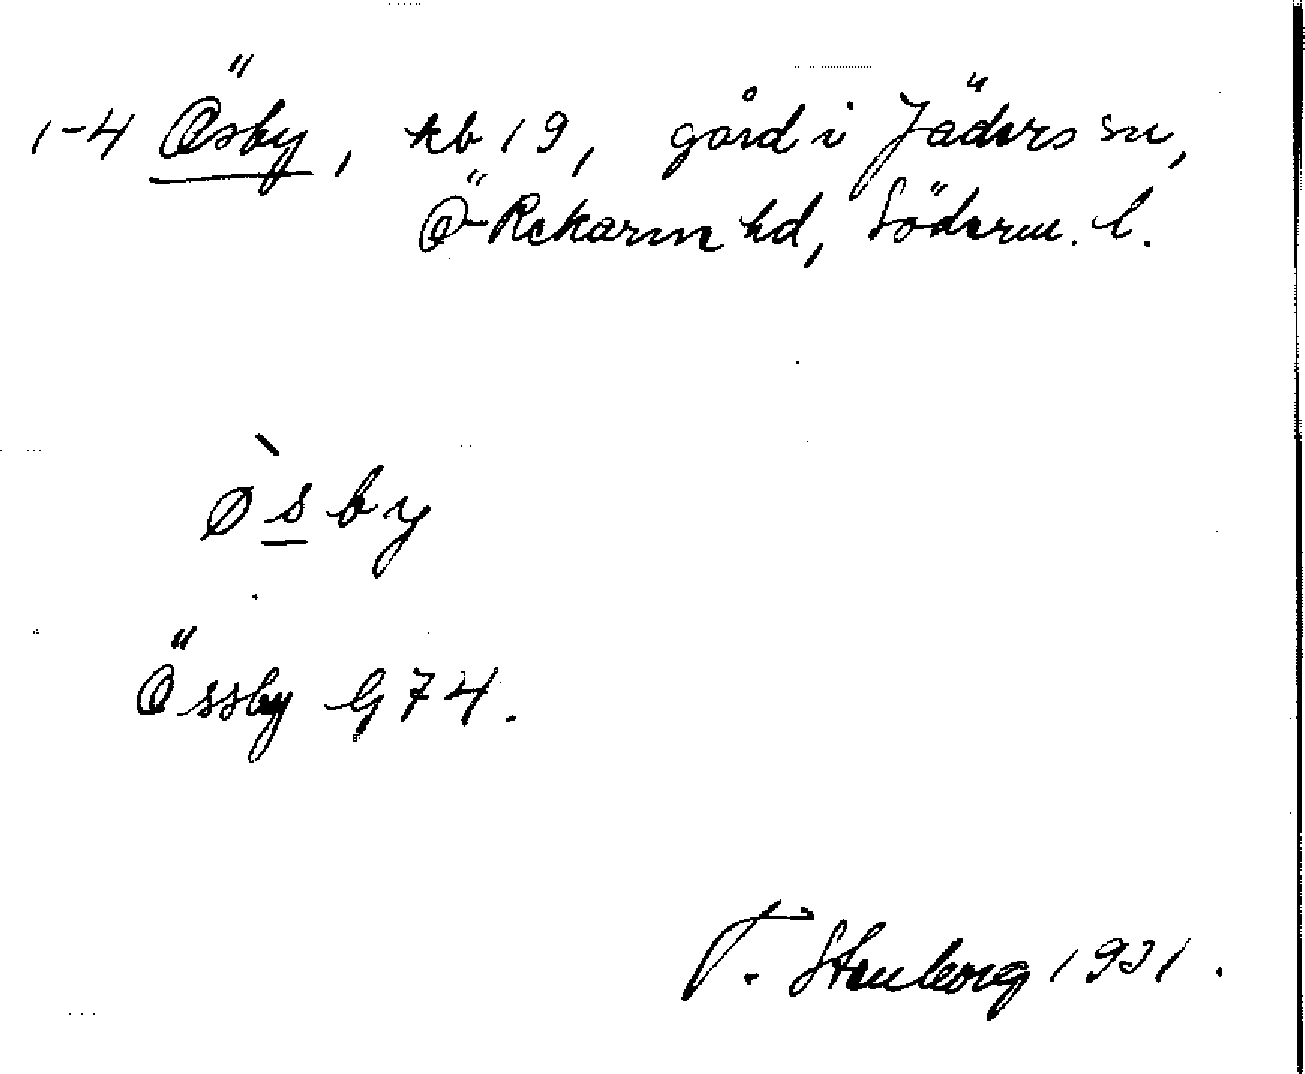 1-4 Ösby, kb 19, gård i Jäders sn,
Ö-Rekarne hd, Söderm. l.
ø̀sby
Össby G 74.
T. Stenborg 1931.